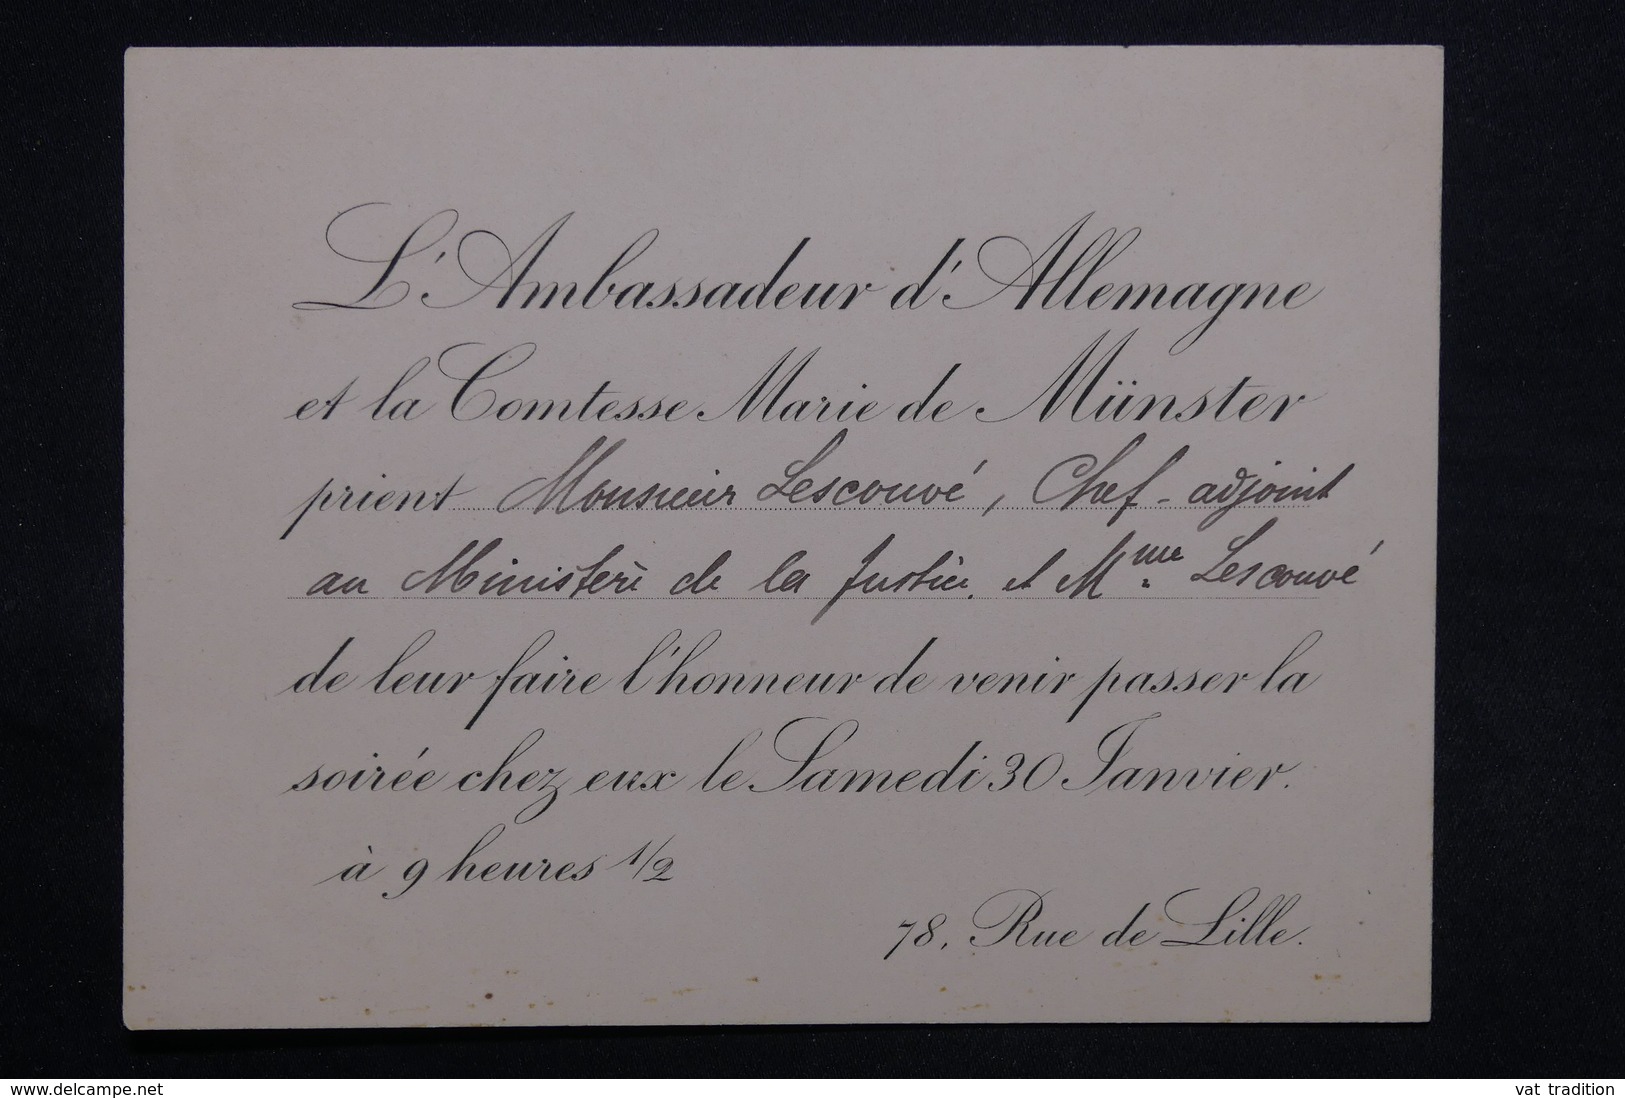 L'Ambassadeur d'Allemagne
et la Comtesse Marie de Münster
prient Monsieur Lescouvé, Chef-adjoint
au Ministère de la Justice, et Mme Lescouvé
de leur faire l'honneur de venir passer la
soirée chez eux le Samedi 30 Janvier.
à 9 heures 1/2
78, Rue de Lille.
www.delcampe.net
vat tradition